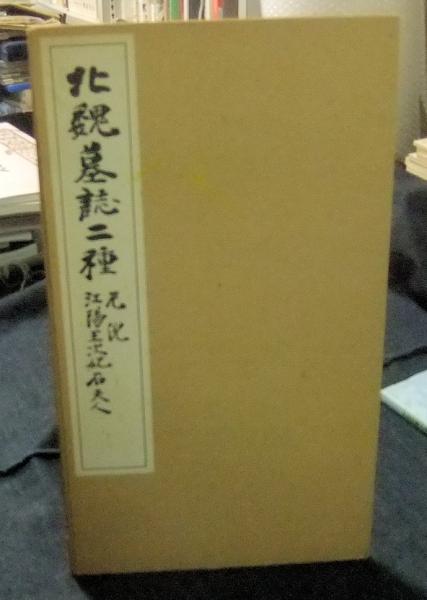 北魏墓誌二種
元倪
江陽王次妃石夫人